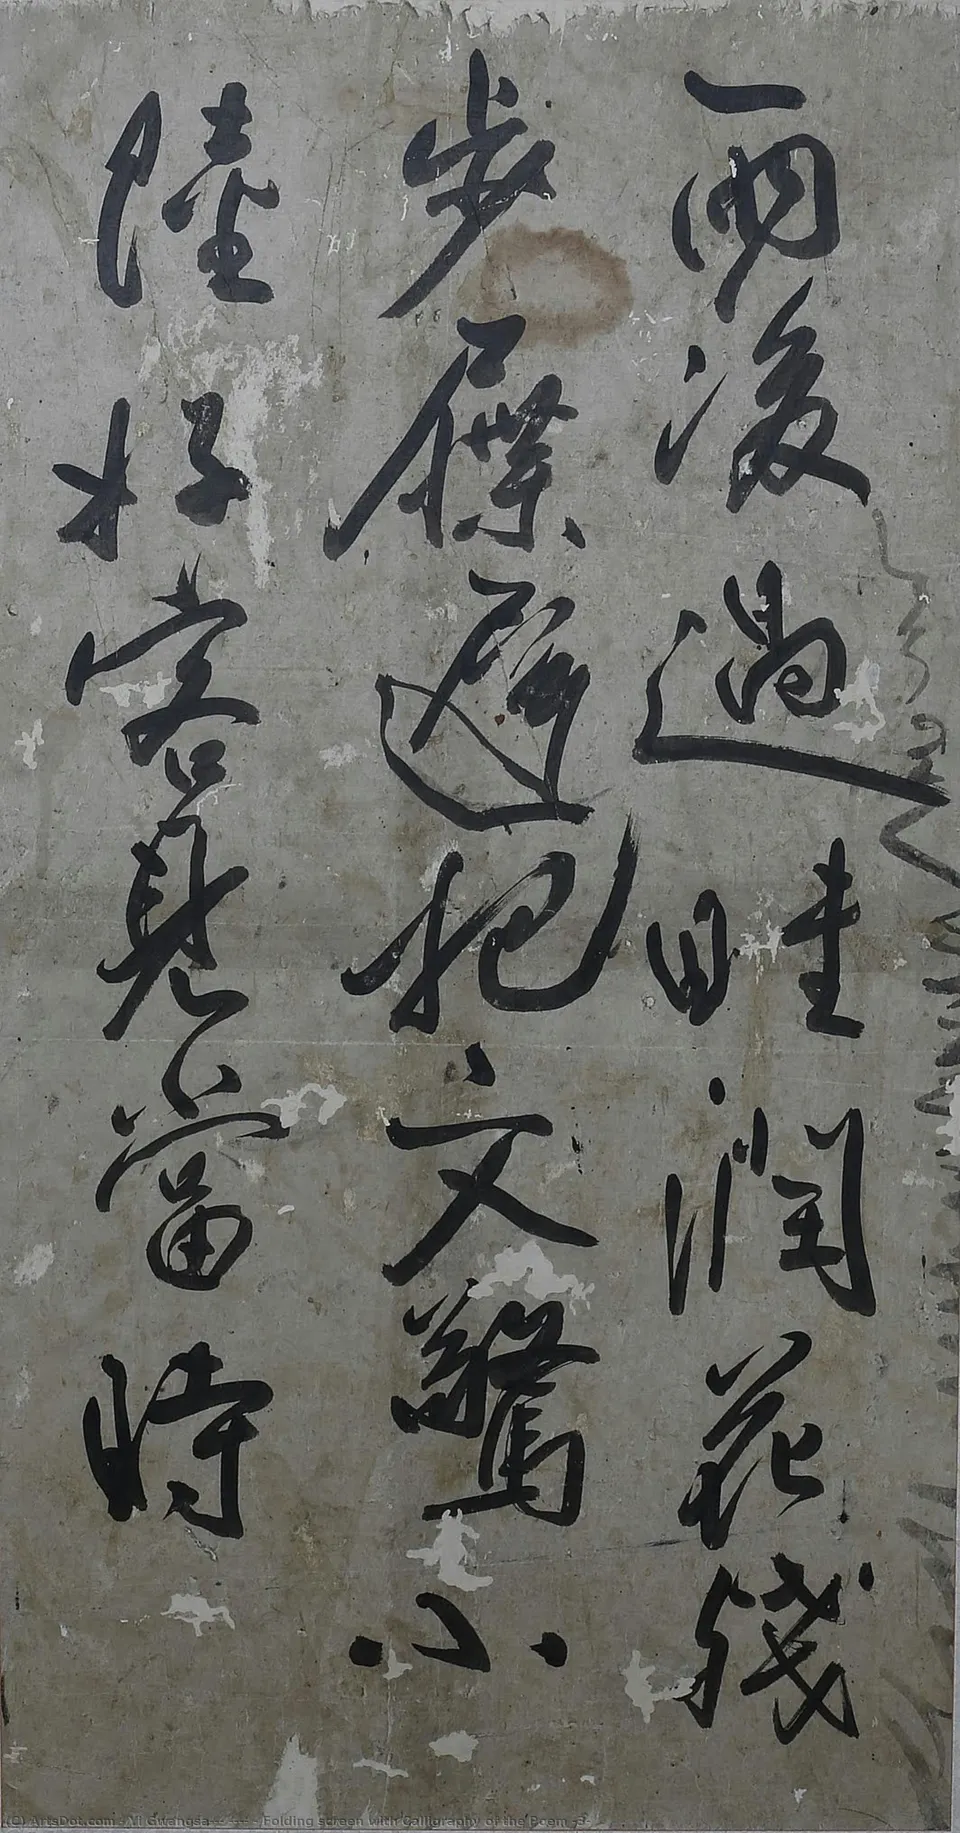 雨後過畦潤花殘
步屧遲把文驚小
陸好客見當時
(C) ArtsDot.com - Yi Gwangsa - Folding screen with Calligraphy of the Poem -3-